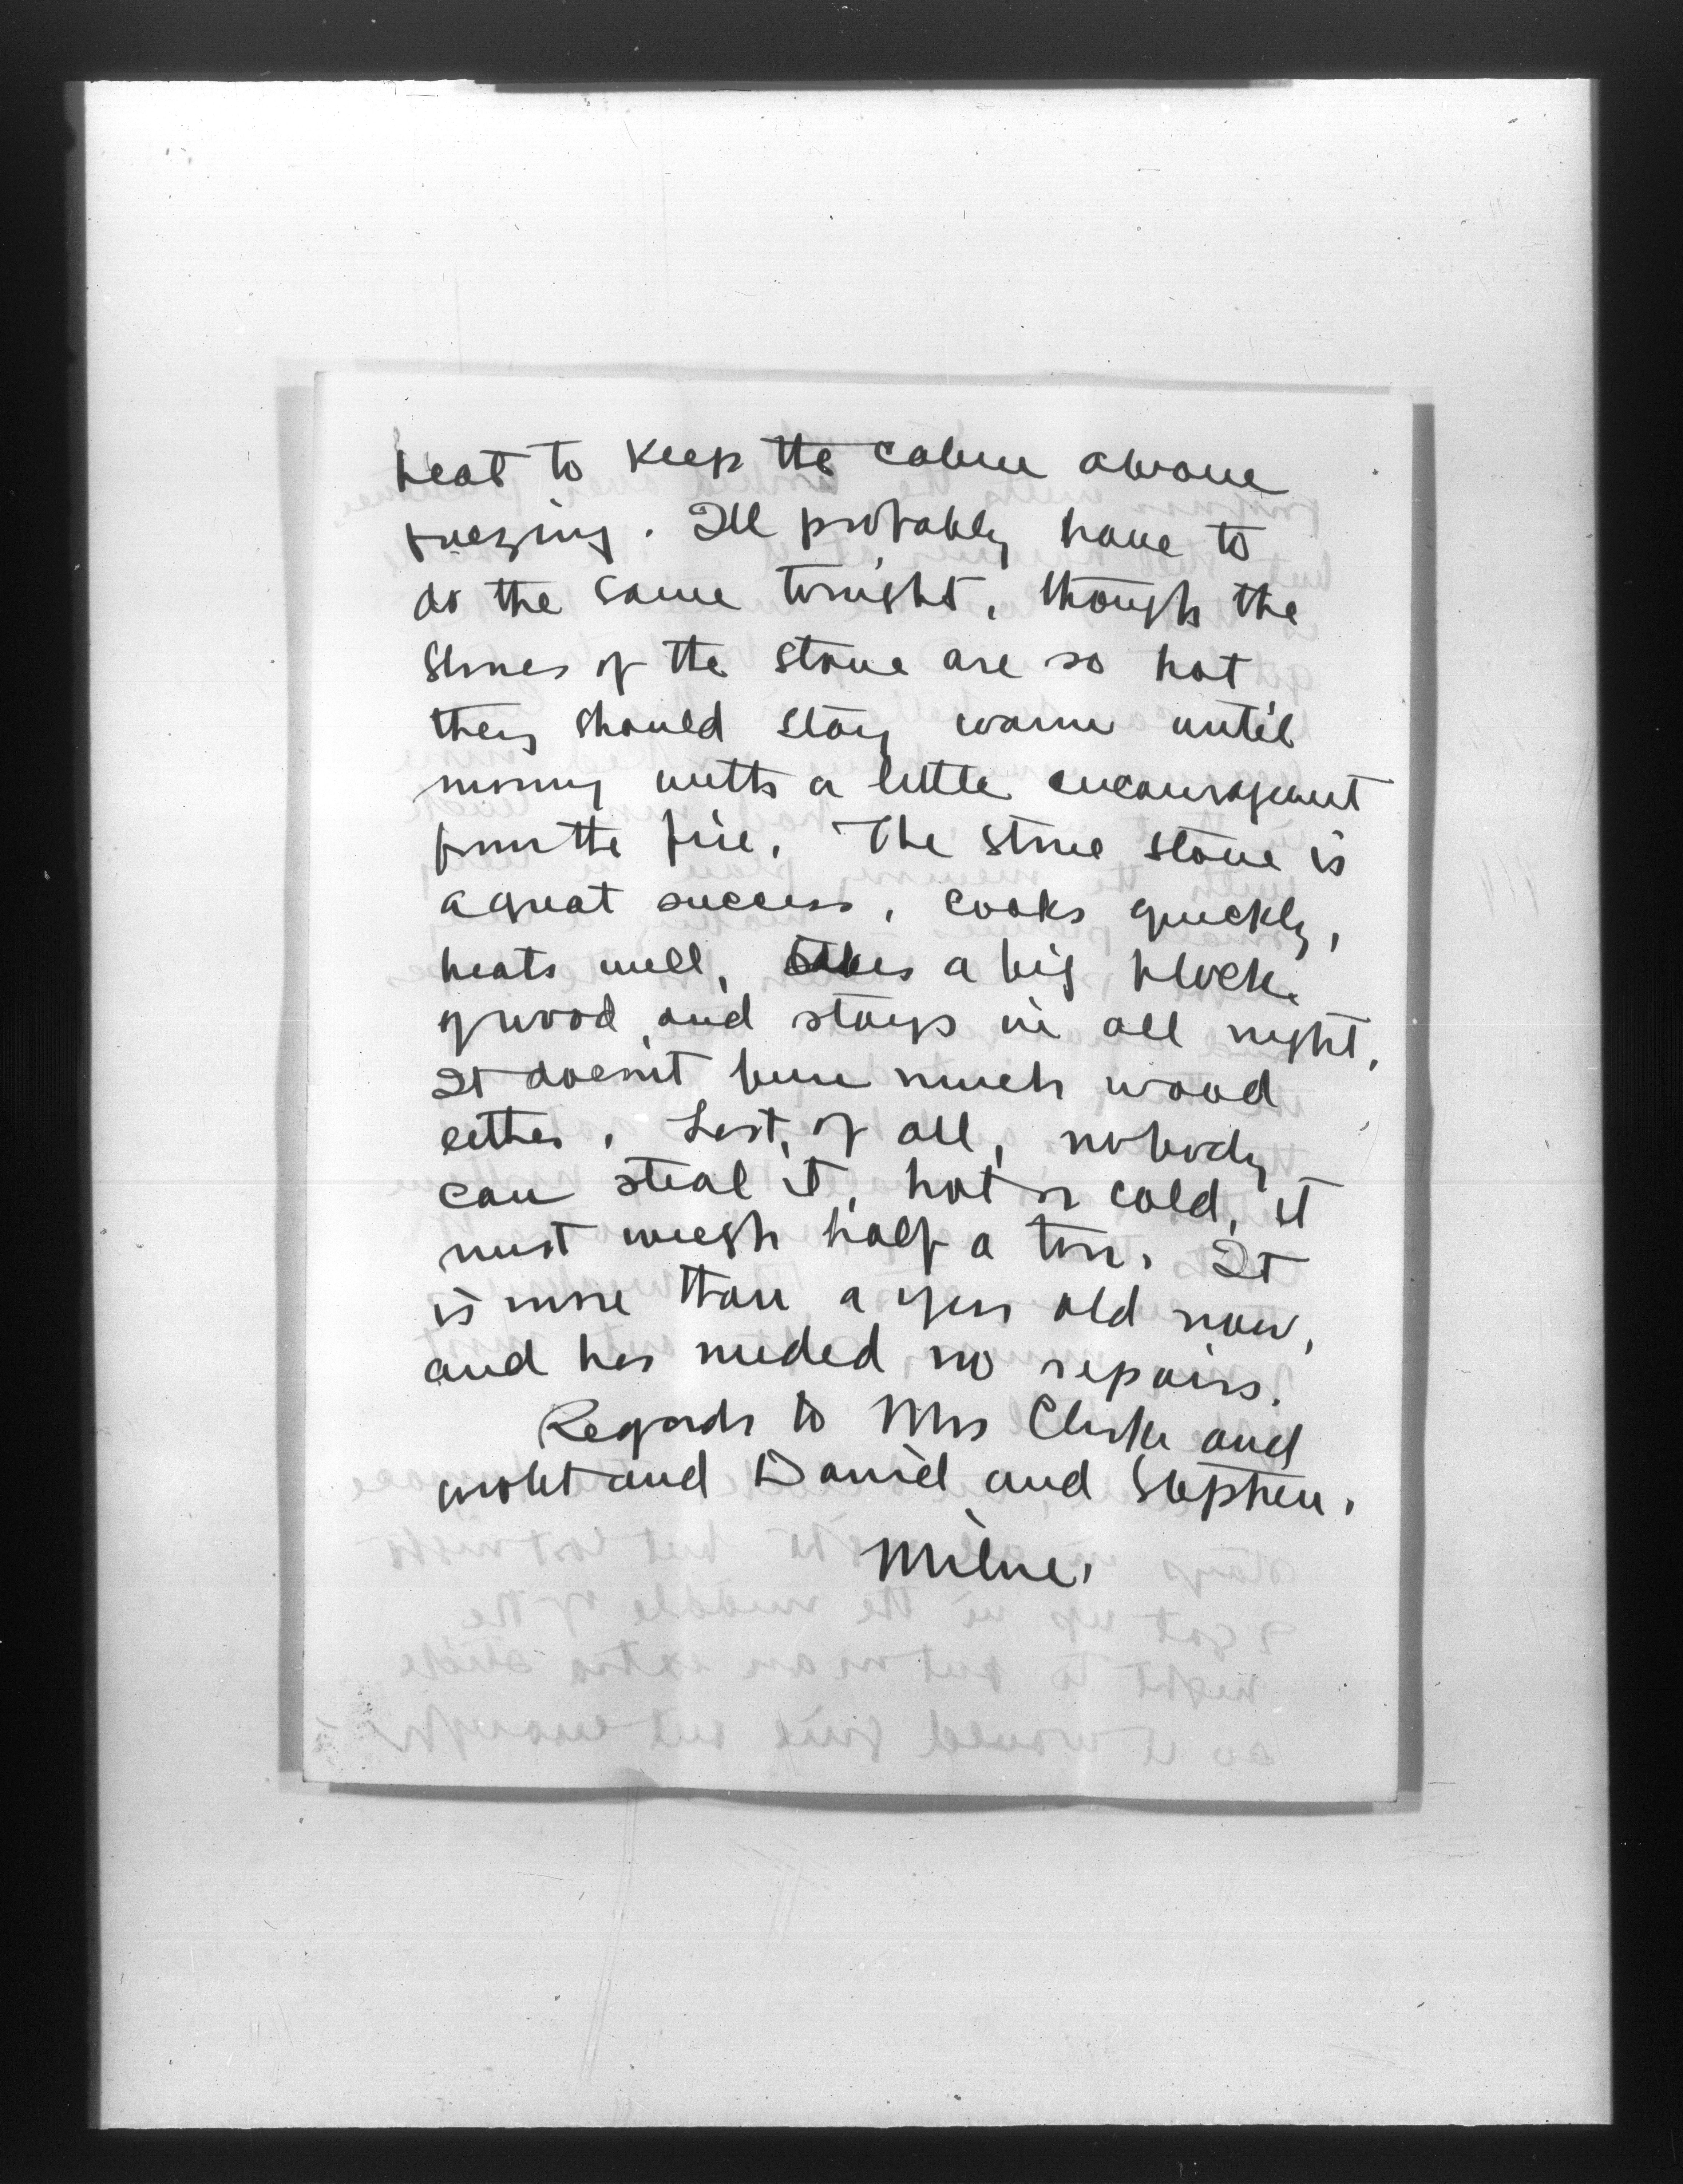 heat to keep the cabin above
freezing. I'll probably have to
do the same tonight, though the
stones of the stove are so hot
they should stay warm until
morning with a little encouragement
from the fire. The stone stove is
a great success, cooks quickly,
heats well, takes a big block
of wood and stays in all night.
It doesn't burn much wood
either. Last, of all, nobody
can steal it, hot or cold, it
must weigh half a ton. It
is more than a year old now,
and has needed no repairs.
Regards to Mrs Clarke and
and Daniel and Stephen.
Milne.